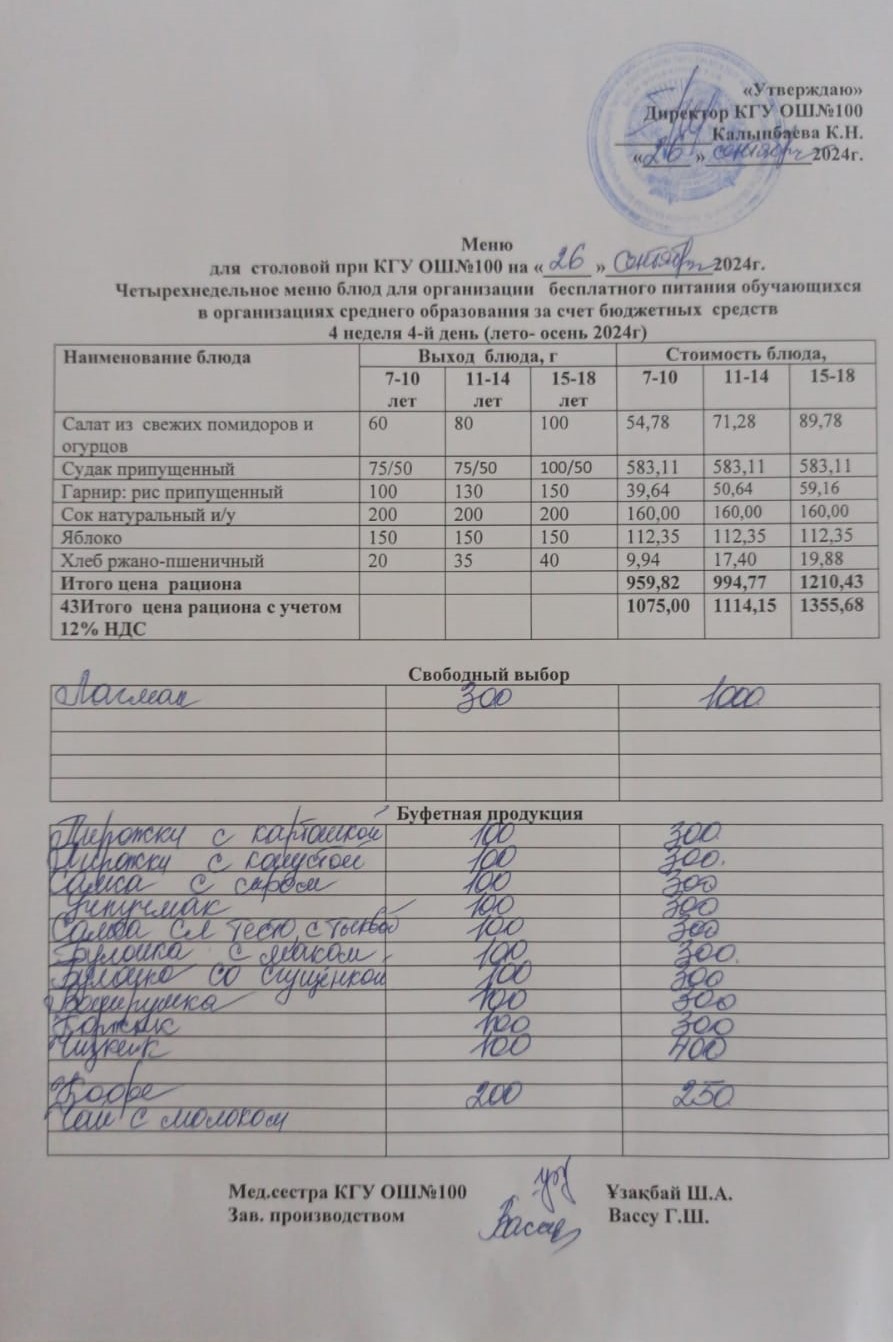 «Утверждаю»
Директор КГУ ОШ№100
Калынбаева К.Н.
«26» сентябрь 2024г.
Меню
для столовой при КГУ ОШ№100 на «26» Сентябрь 2024г.
Четырехнедельное меню блюд для организации бесплатного питания обучающихся
в организациях среднего образования за счет бюджетных средств
4 неделя 4-й день (лето- осень 2024г)
Наименование блюда Выход блюда, г Стоимость блюда,
7-10 лет 11-14 лет 15-18 лет 7-10 11-14 15-18
Салат из свежих помидоров и огурцов 60 80 100 54,78 71,28 89,78
Судак припущенный 75/50 75/50 100/50 583,11 583,11 583,11
Гарнир: рис припущенный 100 130 150 39,64 50,64 59,16
Сок натуральный и/у 200 200 200 160,00 160,00 160,00
Яблоко 150 150 150 112,35 112,35 112,35
Хлеб ржано-пшеничный 20 35 40 9,94 17,40 19,88
Итого цена рациона 959,82 994,77 1210,43
43Итого цена рациона с учетом 12% НДС 1075,00 1114,15 1355,68
Свободный выбор
Лагман 300 1000
Буфетная продукция
Пирожки с картошкой 100 300
Пирожки с капустой 100 300
Самса с сыром 100 300
Учпучмак 100 300
Самса сл тесто с тыквой 100 300
Булочка с маком 100 300
Булочка со сгущенкой 100 300
Ватрушка 100 300
Коржик 100 300
Чизкейк 100 400
Кофе 200 250
Чай с молоком
Мед.сестра КГУ ОШ№100 Ұзақбай Ш.А.
Зав. производством Вассу Г.Ш.